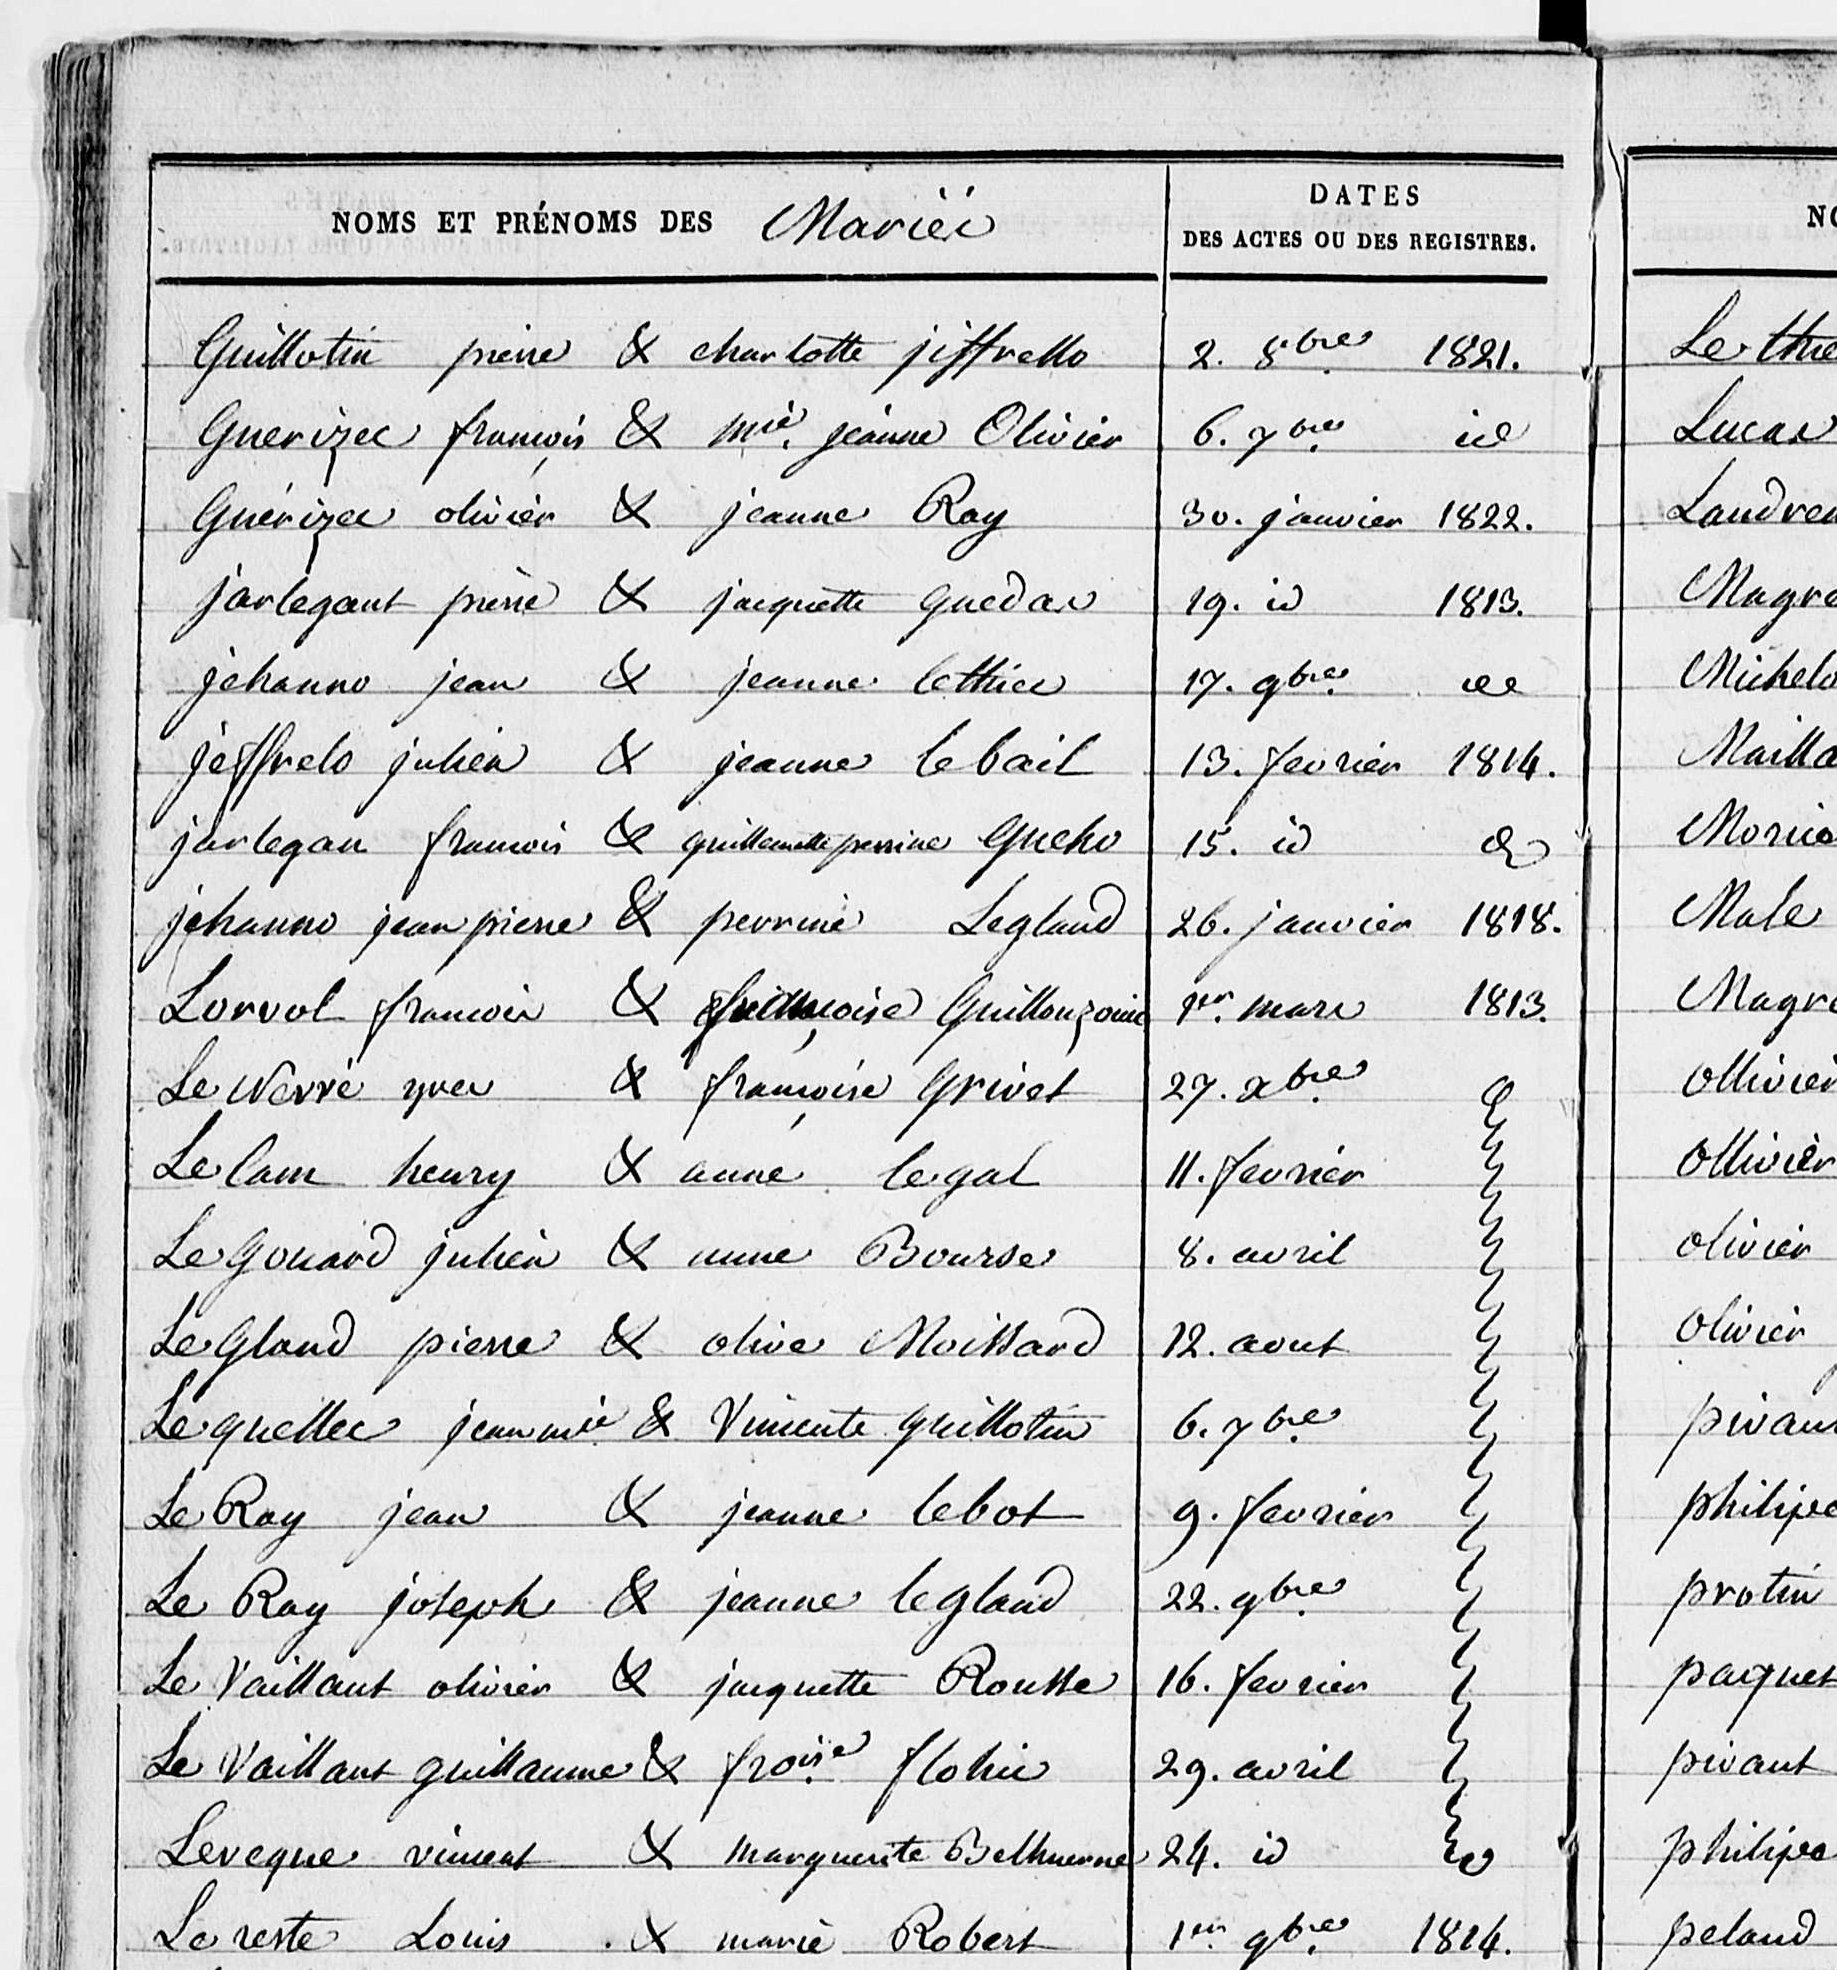 NOMS ET PRÉNOMS DES Mariés
DATES
DES ACTES OU DES REGISTRES.
Guillotin pierre & charlotte jeffrello 2. 8bre. 1821.
Guerizec françois & mie. jeanne Olivier 6. 7bre. id
Guérizec olivier & jeanne Ray 30. janvier 1822.
jarlegant pierre & jacquette Guedas 19. id 1813.
jehanno jean & jeanne lethiec 17. 9bre. id
jeffrelo julien & jeanne le bail 13. fevrier 1814.
jarlegan francois & guillemette perrine Gueho 15. id
jehanno jean pierre & perrine Legland 26. janvier 1818.
Lorvol francois & françoise Guillouzouic 1er. mars 1813.
Le Nerré yves & françoise Grivet 27. xbre.
Le lam henry & anne le gal 11. fevrier
Le Gouard julien & anne Bourse 8. avril
Le Gland pierre & olive Moissard 12. aout
Le quellec jean mie & Vincente guillotin 6. 7bre.
Le Ray jean & jeanne lebot 9. fevrier
Le Ray joseph & jeanne legland 22. 9bre.
Le Vaillant olivier & jacquette Rousse 16. fevrier
Le Vaillant guillaume & froise. flohic 29. avril
Leveque vincent & marguerite Belhuerne 24. id
Le reste Louis & marie Robert 1er 9bre. 1814.
NO
Le thie
Lucas
Landreu
Magre
Michelo
Mailla
Morice
Malé
Magre
Ollivier
Ollivier
Olivier
Olivier
pivau
philipe
protin
paquet
pivant
philipe
peland